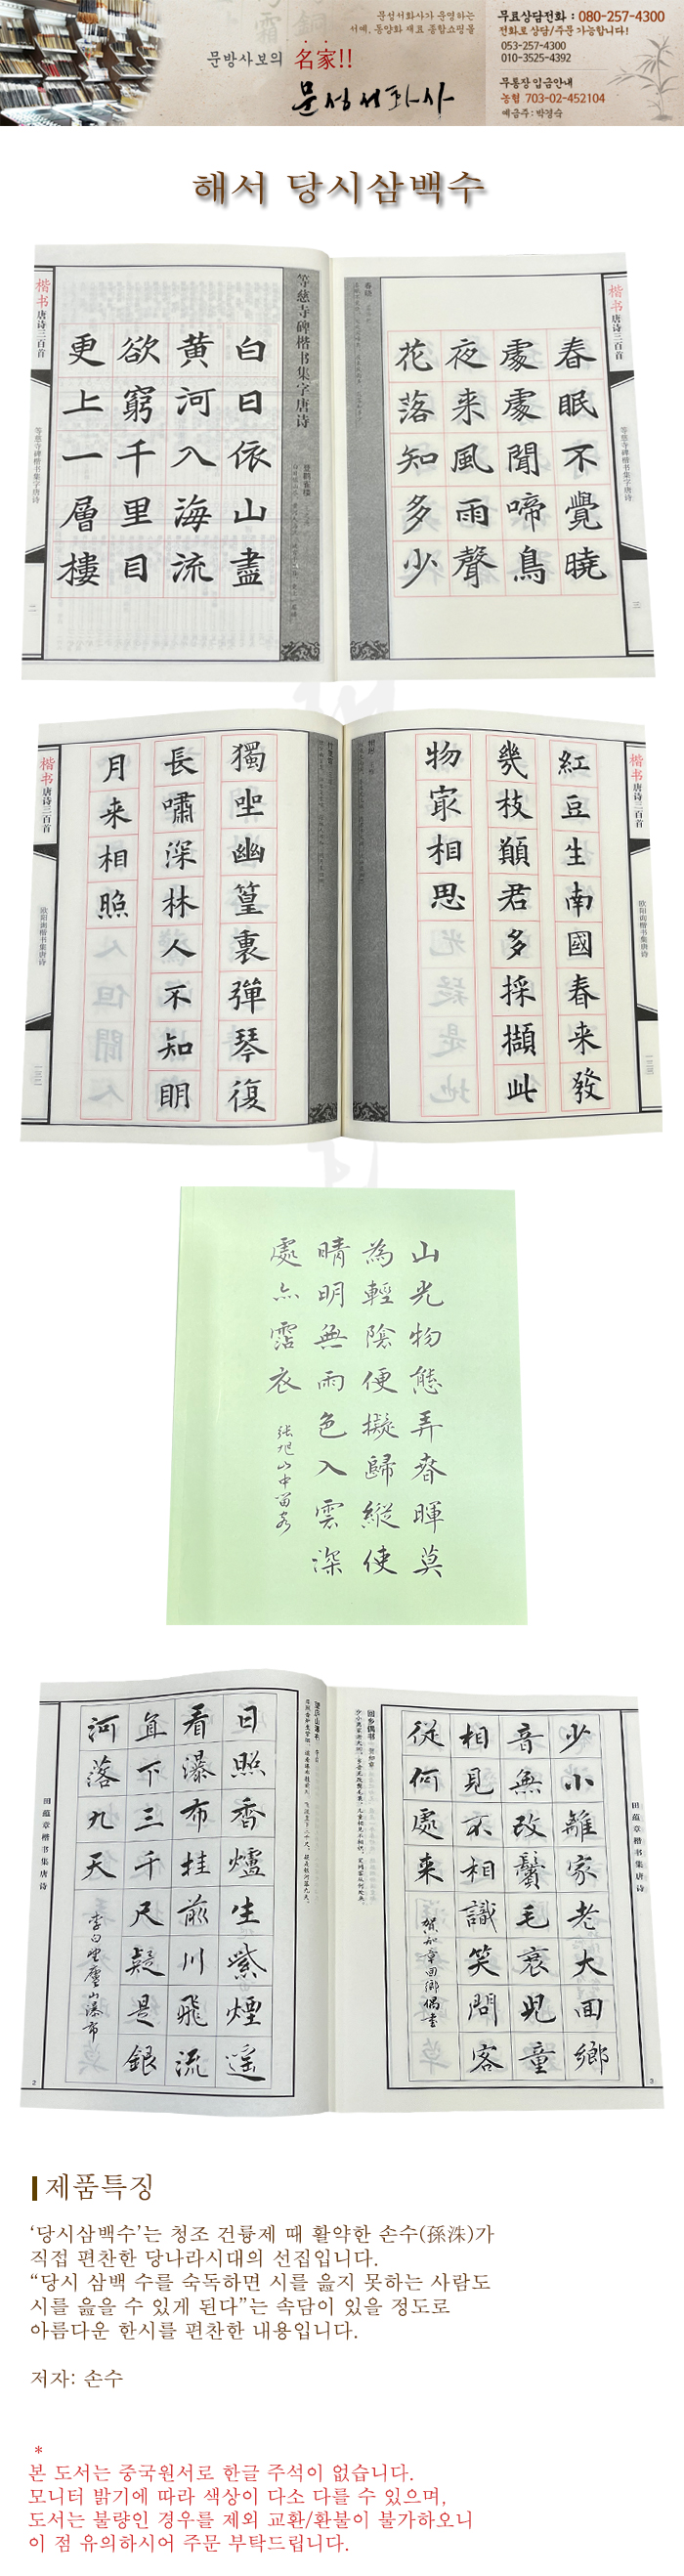 문성서화사가 운영하는
서예, 동양화 재료 종합쇼핑몰
문방사보의 名家!!
문성서화사
무료상담전화 : 080-257-4300
전화로 상담/주문 가능합니다!
053-257-4300
010-3525-4392
무통장 입금안내
농협 703-02-452104
예금주 : 박경숙
해서 당시삼백수
楷书 唐诗三百首
等慈寺碑楷书集字唐诗
三
春晓
春眠不覺曉
處處聞啼鳥
夜来風雨聲
花落知多少
等慈寺碑楷书集字唐诗
登鹳雀楼
白日依山盡
黄河入海流
欲窮千里目
更上一層樓
楷书 唐诗三百首
等慈寺碑楷书集字唐诗
二
楷书 唐诗三百首
欧阳询楷书集唐诗
紅豆生南國春来發
幾枝願君多採擷此
物寂相思
相思
竹里馆
獨坐幽篁裏彈琴復
長嘯深林人不知明
月来相照
楷书 唐诗三百首
欧阳询楷书集唐诗
山光物態弄春暉莫
為輕陰便擬歸縱使
晴明無雨色入雲深
處亦霑衣
张旭山中留客
田蕴章楷书集唐诗
3
少小離家老大回鄉
音無改鬢毛衰兒童
相見不相識笑問客
從何處来
賀知章回鄉偶書
回乡偶书 贺知章
望庐山瀑布 李白
日照香爐生紫煙遥
看瀑布挂前川飛流
直下三千尺疑是銀
河落九天
李白望廬山瀑布
田蕴章楷书集唐诗
2
제품특징
‘당시삼백수’는 청조 건륭제 때 활약한 손수(孫洙)가
직접 편찬한 당나라시대의 선집입니다.
“당시 삼백 수를 숙독하면 시를 읊지 못하는 사람도
시를 읊을 수 있게 된다”는 속담이 있을 정도로
아름다운 한시를 편찬한 내용입니다.
저자: 손수
*
본 도서는 중국원서로 한글 주석이 없습니다.
모니터 밝기에 따라 색상이 다소 다를 수 있으며,
도서는 불량인 경우를 제외 교환/환불이 불가하오니
이 점 유의하시어 주문 부탁드립니다.